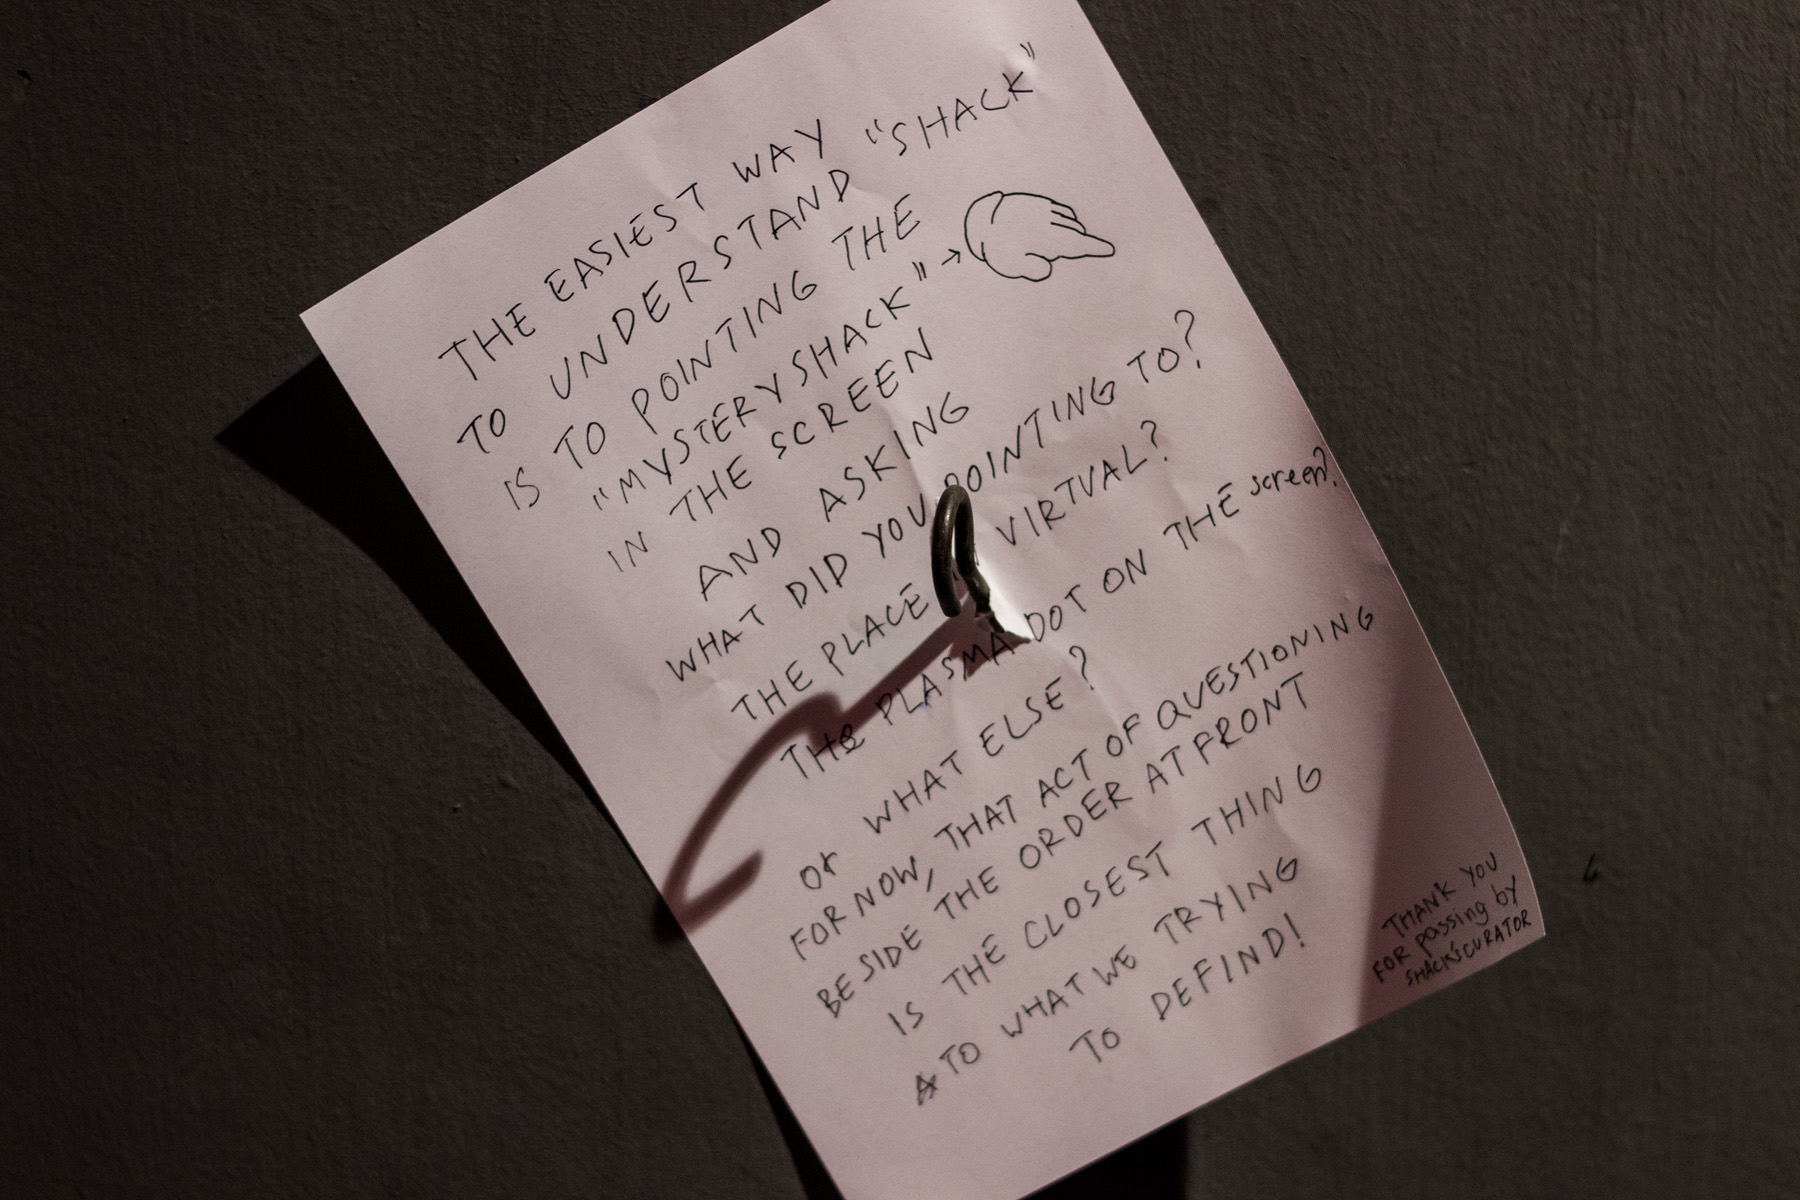 THE EASIEST WAY
TO UNDERSTAND "SHACK"
IS TO POINTING THE
"MYSTERY SHACK" →
IN THE SCREEN
AND ASKING
WHAT DID YOU POINTING TO?
THE PLACE VIRTUAL?
THE PLASMA DOT ON THE screen?
or WHAT ELSE?
FOR NOW, THAT ACT OF QUESTIONING
BESIDE THE ORDER AT FRONT
IS THE CLOSEST THING
TO WHAT WE TRYING
TO DEFIND!
THANK YOU
FOR passing by
SHACK'S CURATOR